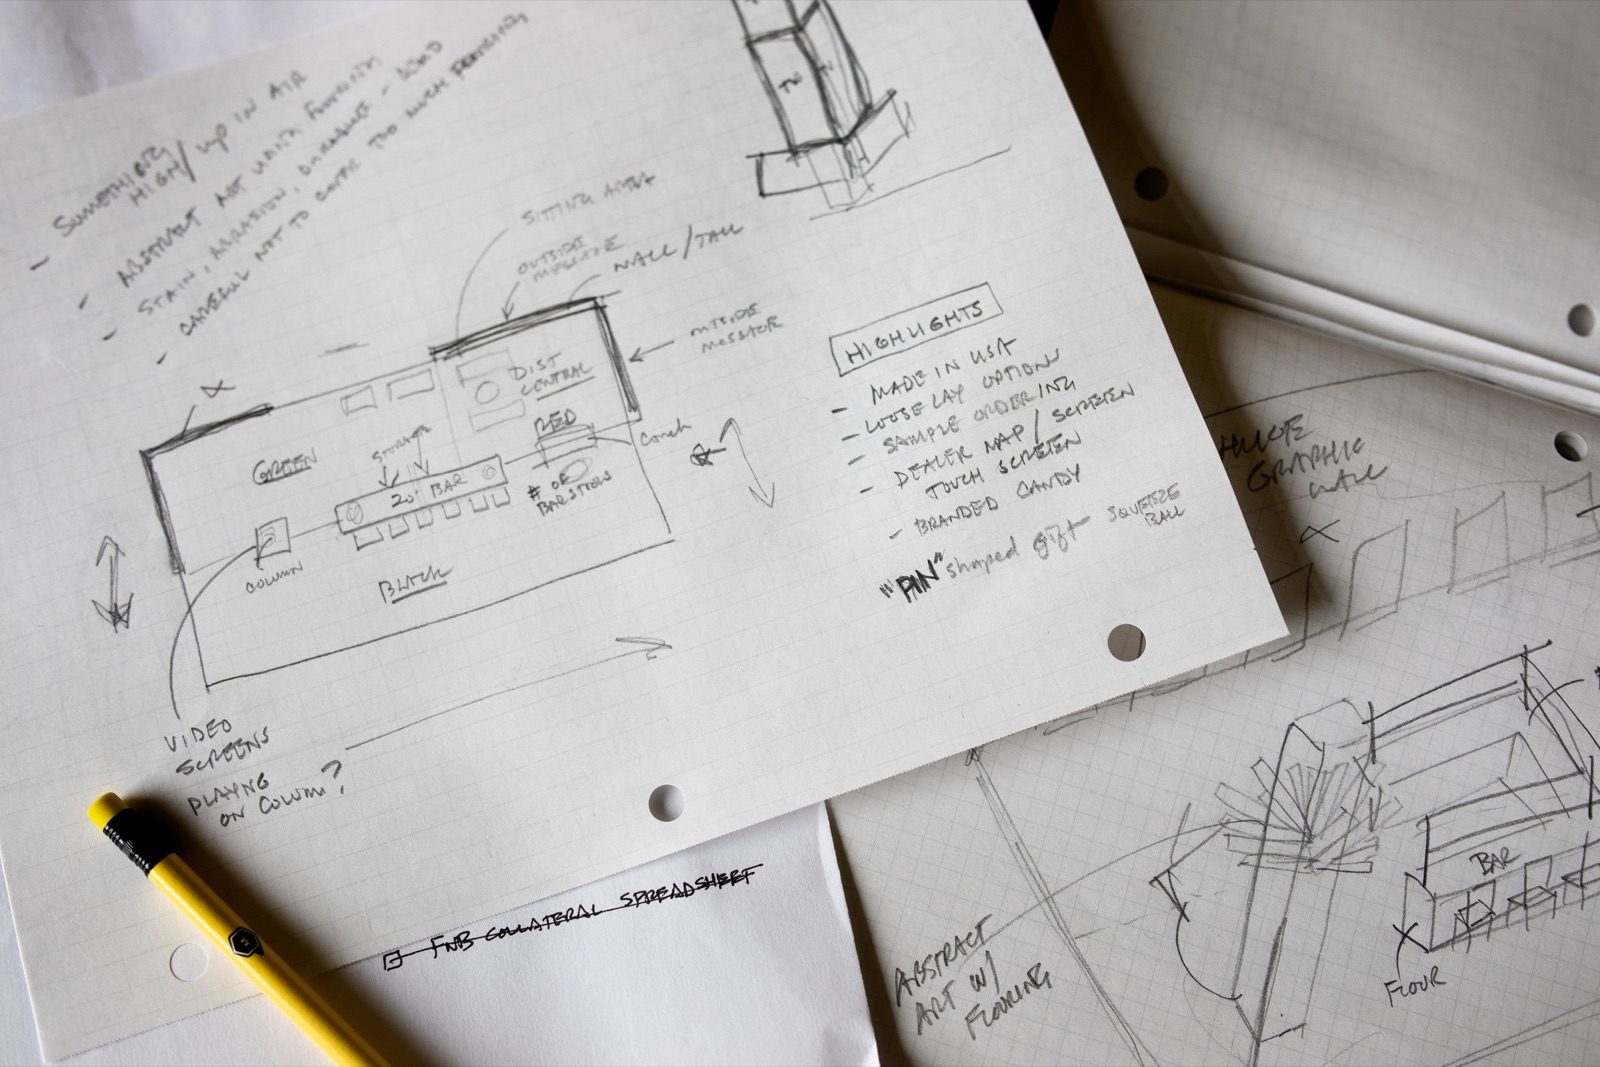 - SOMETHING
HIGH / UP IN AIR
- ABSTRACT ART WITH FLOORING
- STAIN, ABRASION, DAMAGE - DEMO
- CAREFUL NOT TO COVER TOO MUCH FLOORING
TV
TV
SITTING AREA
OUTSIDE
MESSAGE
WALL/TALL
OUTSIDE
MESSAGE
DIST
CENTRAL
RED
COUCH
GREEN
STORAGE
20' BAR
# OF
BARSTOOLS
COLUMN
BLACK
VIDEO
SCREENS
PLAYNG
ON COLUMN?
HIGHLIGHTS
- MADE IN USA
- LOOSE LAY OPTIONS
- SAMPLE ORDERING
- DEALER MAP / SCREEN
TOUCH SCREEN
- BRANDED CANDY
"PIN" shaped gift SQUEEZE
BALL
FNB COLLATERAL SPREADSHEET
HUGE
GRAPHIC
WALL
BAR
FLOOR
ABSTRACT
ART W/
FLOORING